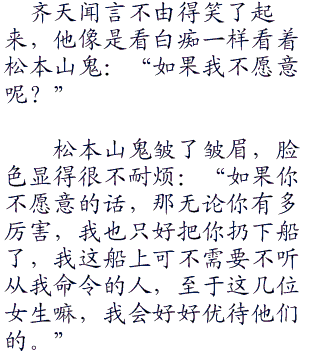 齐天闻言不由得笑了起
来，他像是看白痴一样看着
松本山鬼：“如果我不愿意
呢？”
松本山鬼皱了皱眉，脸
色显得很不耐烦：“如果你
不愿意的话，那无论你有多
厉害，我也只好把你扔下船
了，我这船上可不需要不听
从我命令的人，至于这几位
女生嘛，我会好好优待他们
的。”